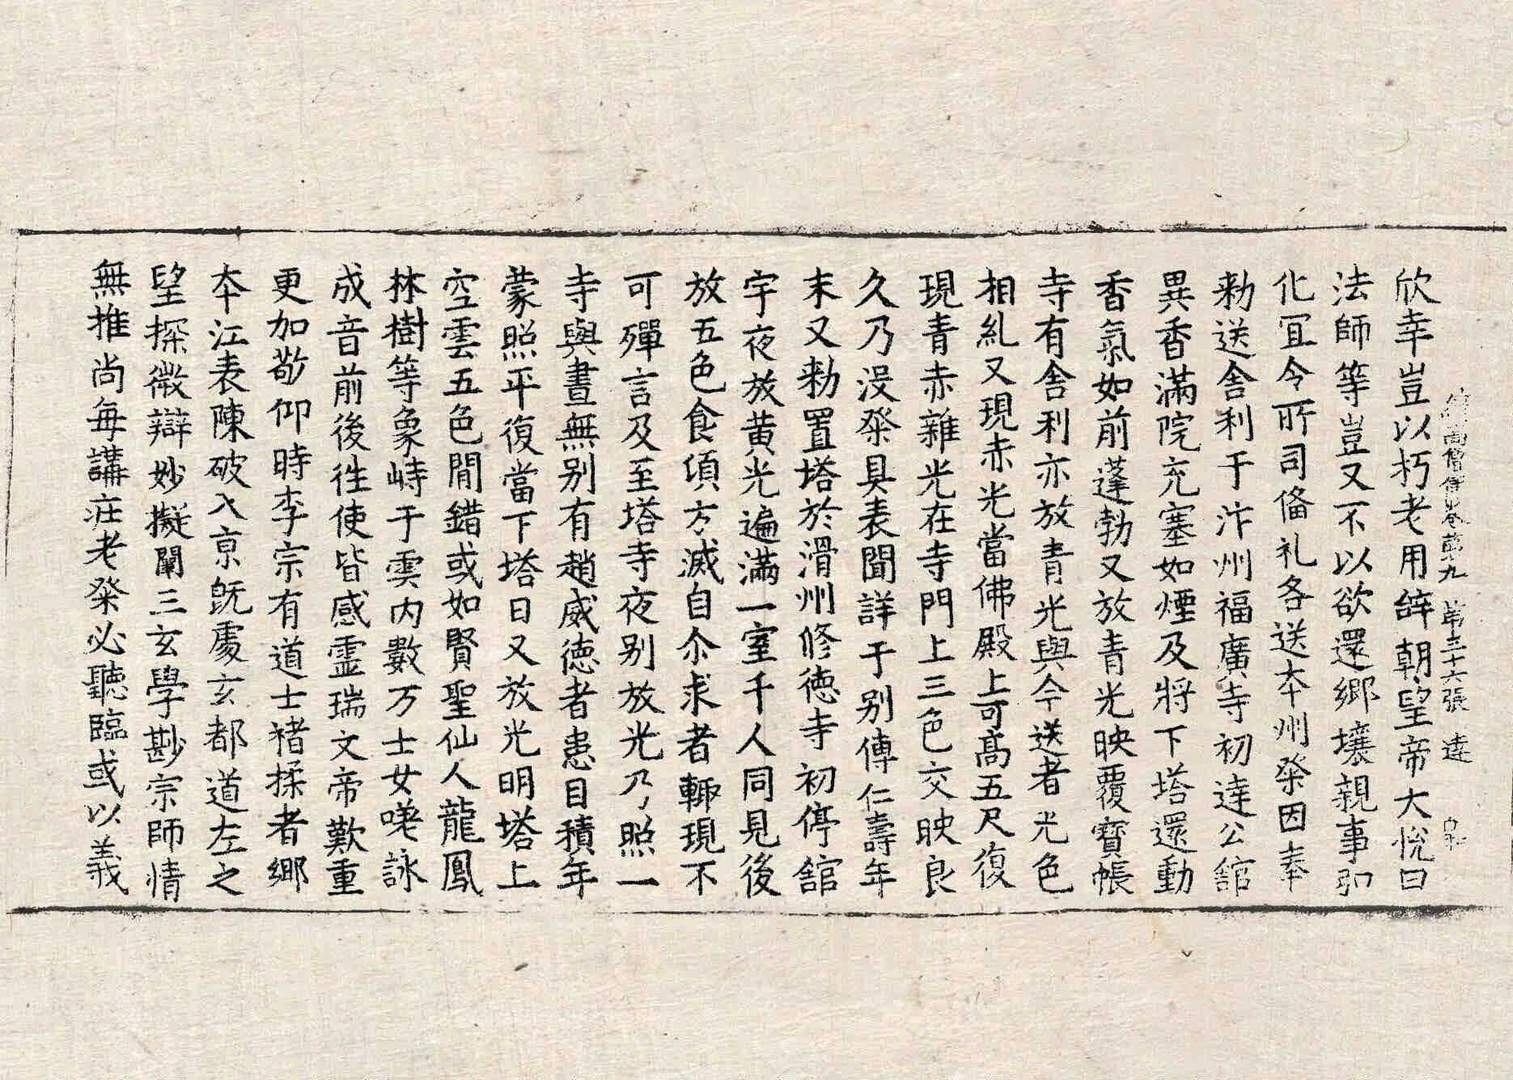 續高僧傳卷第九 第三十六張 達
欣幸豈以朽老用辭朝望帝大悅曰
法師等豈又不以欲還鄉壤親事弘
化冝令所司俻礼各送夲州發因奉
勑送舍利于汴州福廣寺初達公館
異香滿院充塞如煙及將下塔還動
香氣如前蓬勃又放青光映覆寶帳
寺有舍利亦放青光與今送者光色
相糺又現赤光當佛殿上可高五尺復
現青赤雜光在寺門上三色交映良
久乃沒發具表聞詳于别傳仁壽年
末又勑置塔於滑州修德寺初停館
宇夜放黃光遍滿一室千人同見後
放五色食頃方滅自尒求者輙現不
可殫言及至塔寺夜别放光乃照一
寺與晝無别有趙威德者患目積年
蒙照平復當下塔日又放光明塔上
空雲五色閒錯或如賢聖仙人龍鳳
林樹等象峙于雲內數万士女唉詠
成音前後徃使皆感霊瑞文帝歎重
更加敬仰時李宗有道士褚揉者鄉
夲江表陳破入京既處玄都道左之
望探微辯妙擬闡三玄學尠宗師情
無推尚每講庄老發必聽臨或以義